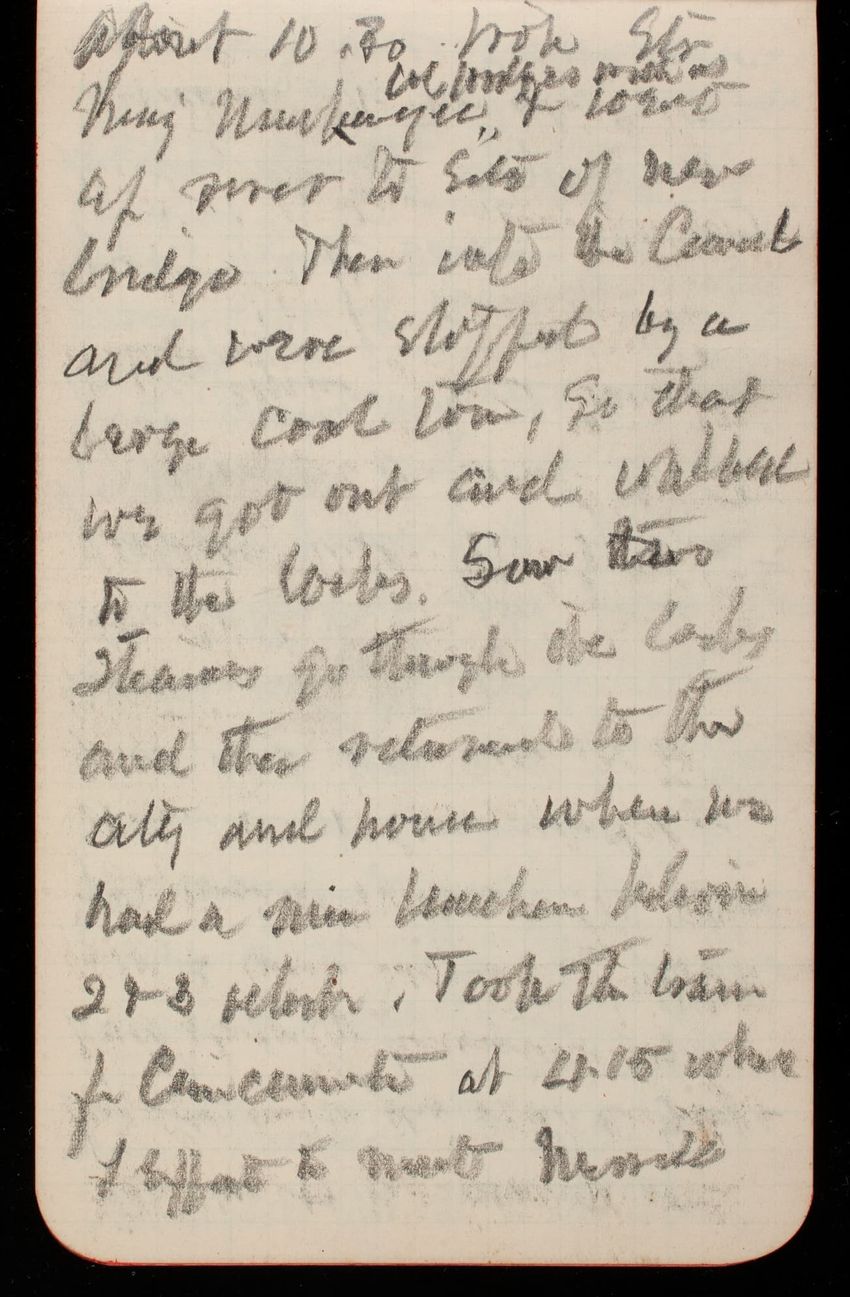 About 10.30 took Str
Col Hodges with us
& went
up river to site of new
bridge. Then into the Canal
and were stopped by a
large coal tow, so that
we got out and walked
to the locks. Saw two
steamers go through the locks
and then returned to the
city and house when we
had a nice luncheon between
2 & 3 oclock. Took the train
for Cincinnati at 4.15 where
I expect to meet Merrill